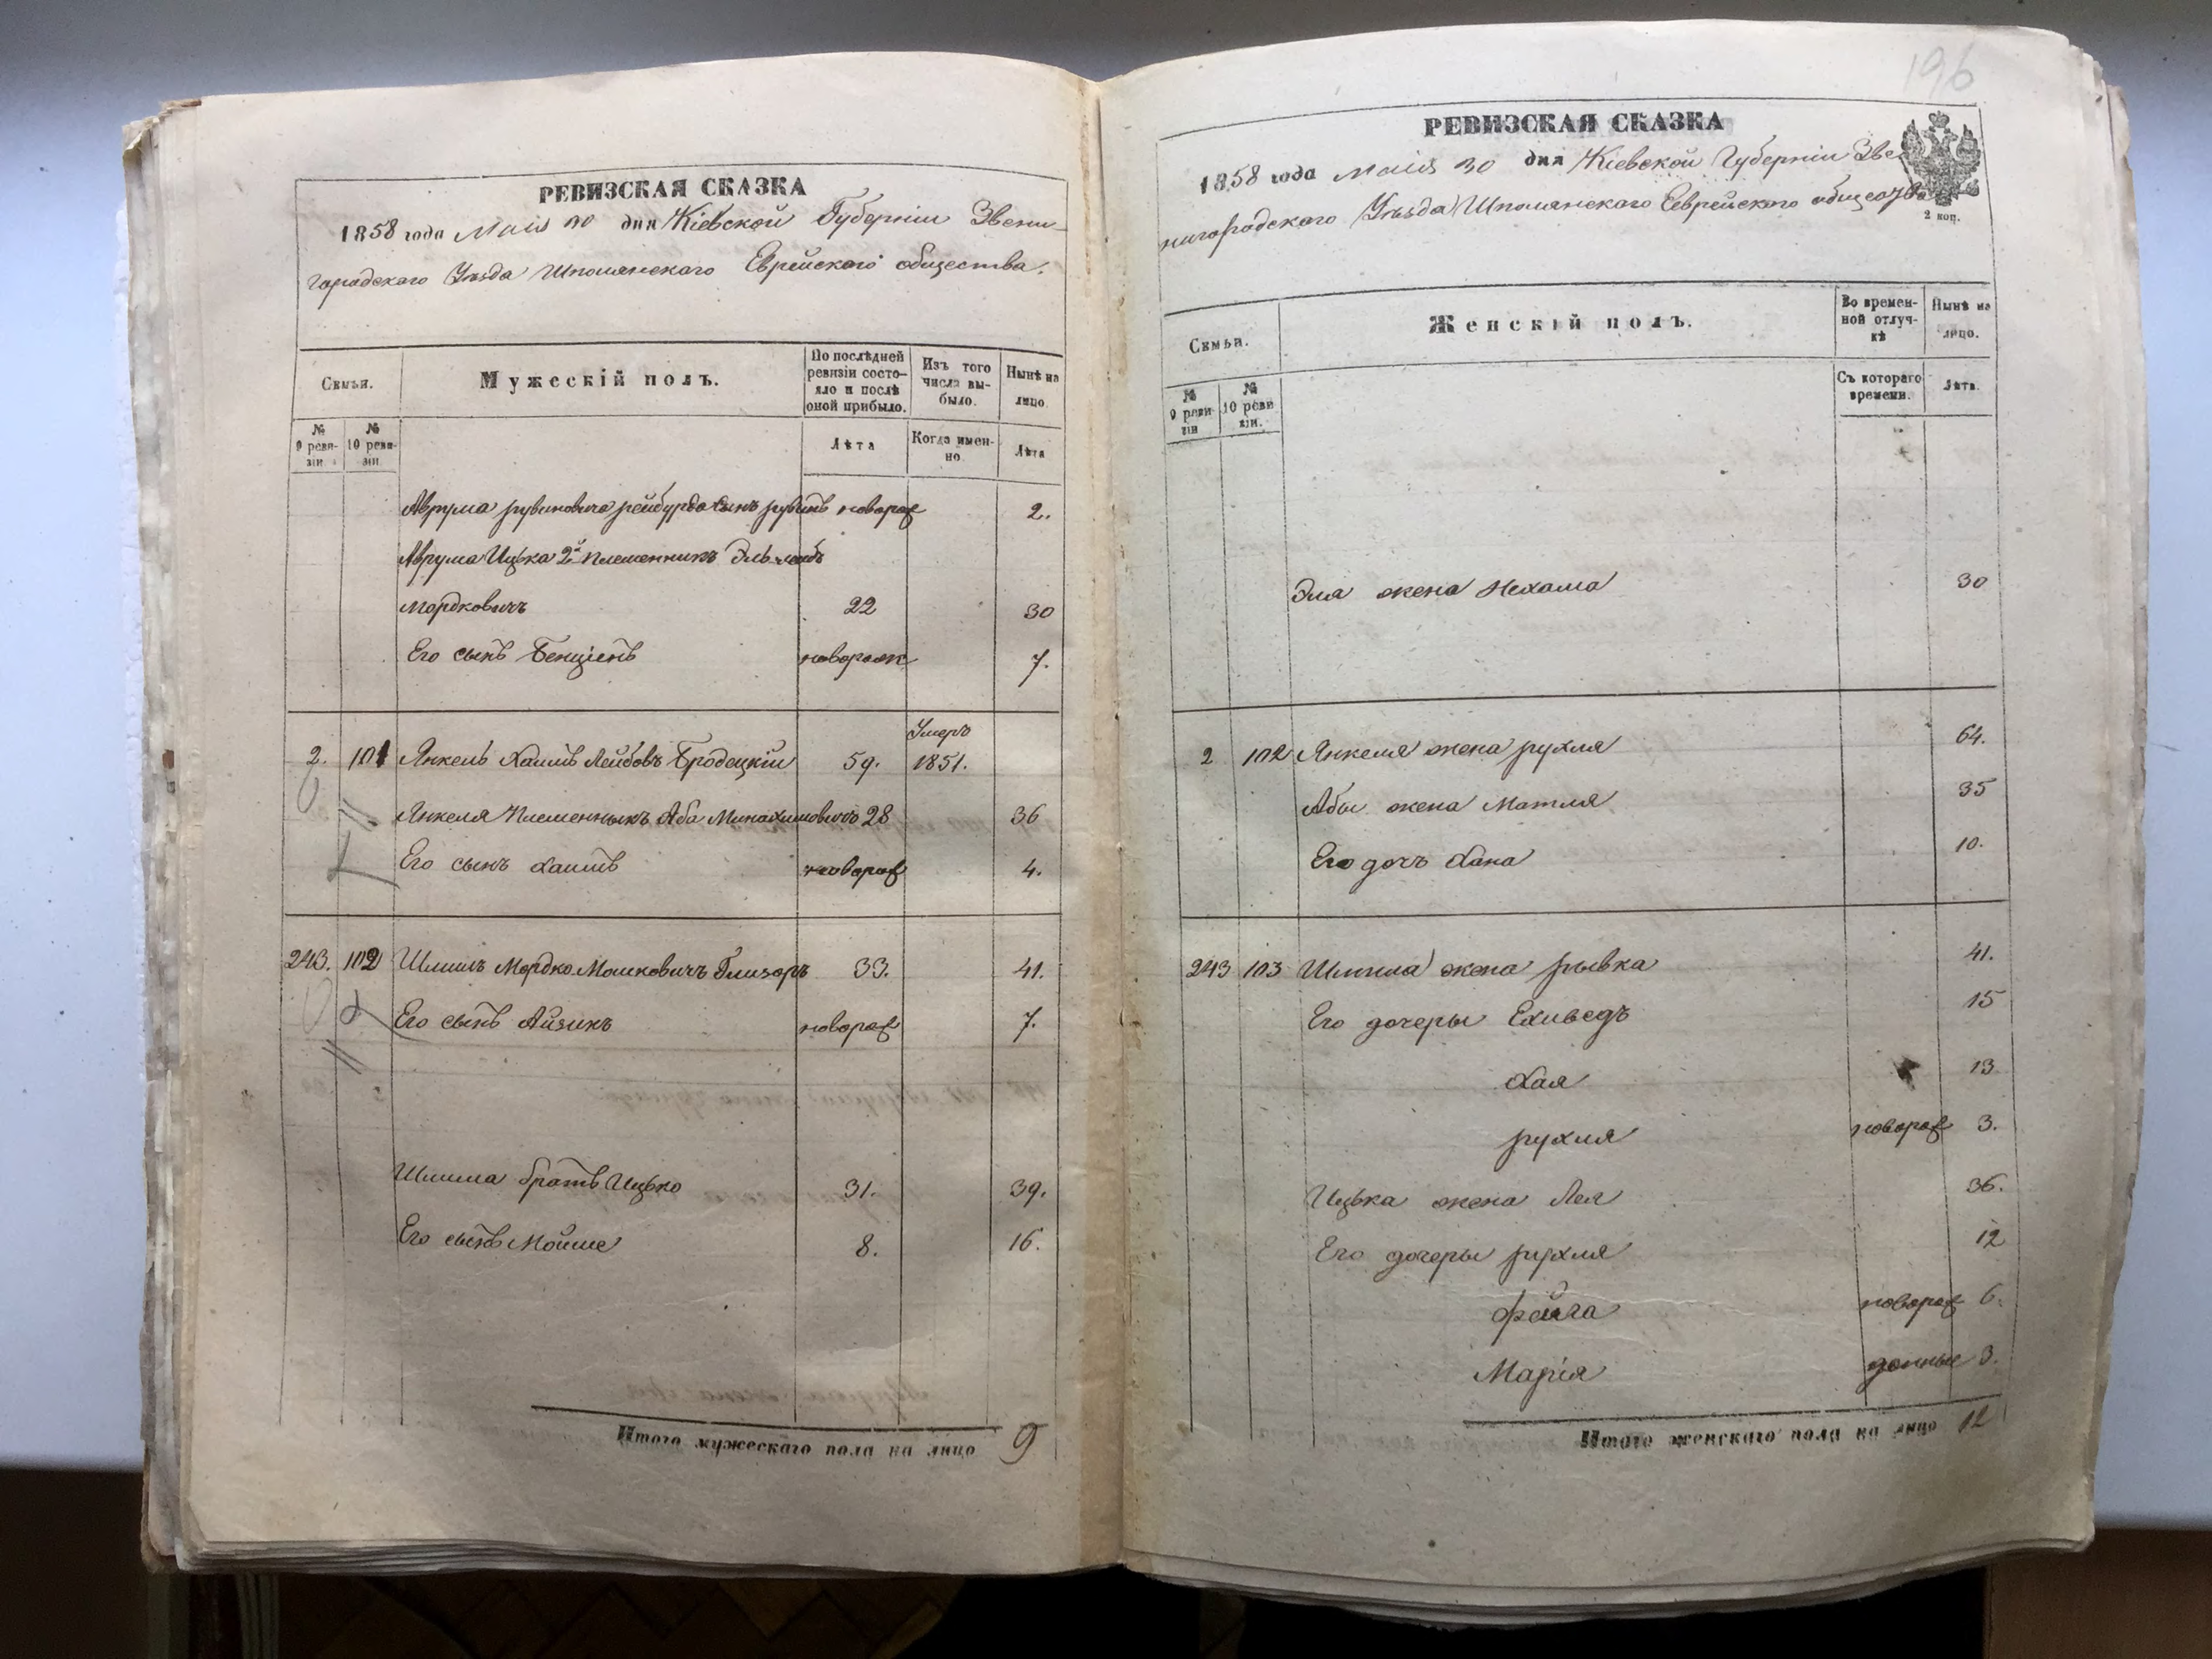 РЕВИЗСКАЯ СКАЗКА
1858 года Маія 30 дня Кіевской Губерніи Звени-
городскаго Уѣзда Шполянскаго Еврейскаго общества.
Семьи.
Мужескій полъ.
По послѣдней ревизіи состояло и послѣ оной прибыло.
Изъ того числа выбыло.
Нынѣ на лицо.
№ 9 ревизіи.
№ 10 ревизіи.
Лѣта
Когда именно.
Лѣта
Аврума рувиновича рейбурда сынъ рувинъ новорож 2.
Аврума Ицька 2й племенникъ Эль-лейбъ
Мордковичъ 22 30
Его сынъ Бенціенъ новорож 7.
Умеръ
2. 101 Янкель Хаимъ Лейбовъ Бродецкій 59. 1851.
Янкеля племенникъ Аба Минахимовичъ 28 36
Его сынъ Хаимъ новорож 4.
243. 102 Шмилъ Мордко Мошковичъ Глизоръ 33. 41.
Его сынъ Айзикъ новорож 7.
Шмила братъ Ицько 31. 39.
Его сынъ Мойше 8. 16.
Итого мужескаго пола на лицо 9
196
РЕВИЗСКАЯ СКАЗКА
1858 года Маія 30 дня Кіевской Губерніи Зве-
нигородскаго Уѣзда Шполянскаго Еврейскаго общества
2 коп.
Семьи.
Женскій полъ.
Во временной отлучкѣ
Нынѣ на лицо.
№ 9 ревизіи
№ 10 ревизіи.
Съ котораго времени.
Лѣта.
Эля жена Нехама 30
2 102 Янкеля жена рухля 64.
Абы жена Матля 35
Его дочъ Хана 10.
243 103 Шмила жена рывка 41.
Его дочеры Ехиведъ 15
Хая 13
рухля новорож 3.
Ицька жена Лея 36.
Его дочеры рухля 12
фейга новорож 6.
Марія 3.
Итого женскаго пола на лицо 12